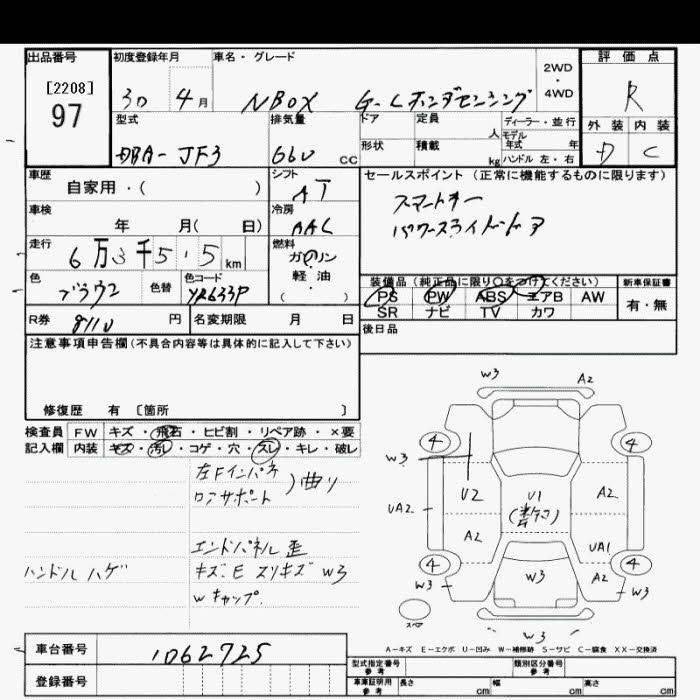 出品番号
[2208]
97
初度登録年月
30 4月
車名・グレード
NBOX G-Lホンダセンシング
2WD
・
4WD
評価点
R
外装 内装
D C
型式
DBA-JF3
排気量
660 cc
ドア 定員 人
形状 積載 kg
ディーラー・並行
モデル
年式 年
ハンドル 左・右
車歴
自家用・( )
シフト
AT
車検
年 月( 日)
冷房
AAC
走行
6万3千5.5km
燃料
ガソリン
・
軽油
( )
色
ブラウン
色替
色コード
YR633P
R券 8110 円
名変期限 月 日
セールスポイント(正常に機能するものに限ります)
スマートキー
パワースライドドア
装備品(純正品に限り○をつけてください)
PS PW ABS エアB AW
SR ナビ TV カワ
新車保証書
有・無
後日品
注意事項申告欄(不具合内容等は具体的に記入して下さい)
修復歴 有 〔箇所 〕
検査員 FW キズ・飛石・ヒビ割・リペア跡・×要
記入欄 内装 キズ・汚レ・コゲ・穴・スレ・キレ・破レ
左Fインパネ
ロアサポート )曲り
エンドパネル歪
ハンドルハゲ
キズ.E スリキズ W3
Wキャップ.
W3 A2
4 4
W3
U2 U1 A2
UA2
A2 UA1
4 4
W3 W3 A2 W3
スペア
W3
A-キズ E-エクボ U-凹み W-補修跡 S-サビ C-腐食 XX-交換済
車台番号 1062725
登録番号
型式指定番号
参考
類別区分番号
参考
車庫証明用
参考
長さ cm 幅 cm 高さ cm